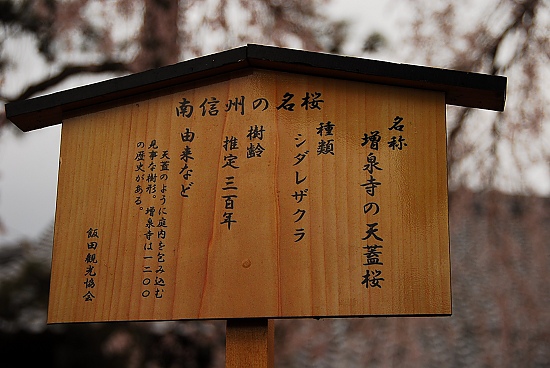 南信州の名桜
名称
増泉寺の天蓋桜
種類
シダレザクラ
樹齢
推定 三百年
由来など
天蓋のように庭内を包み込む
見事な樹形。増泉寺は一二〇〇
の歴史がある。
飯田観光協会